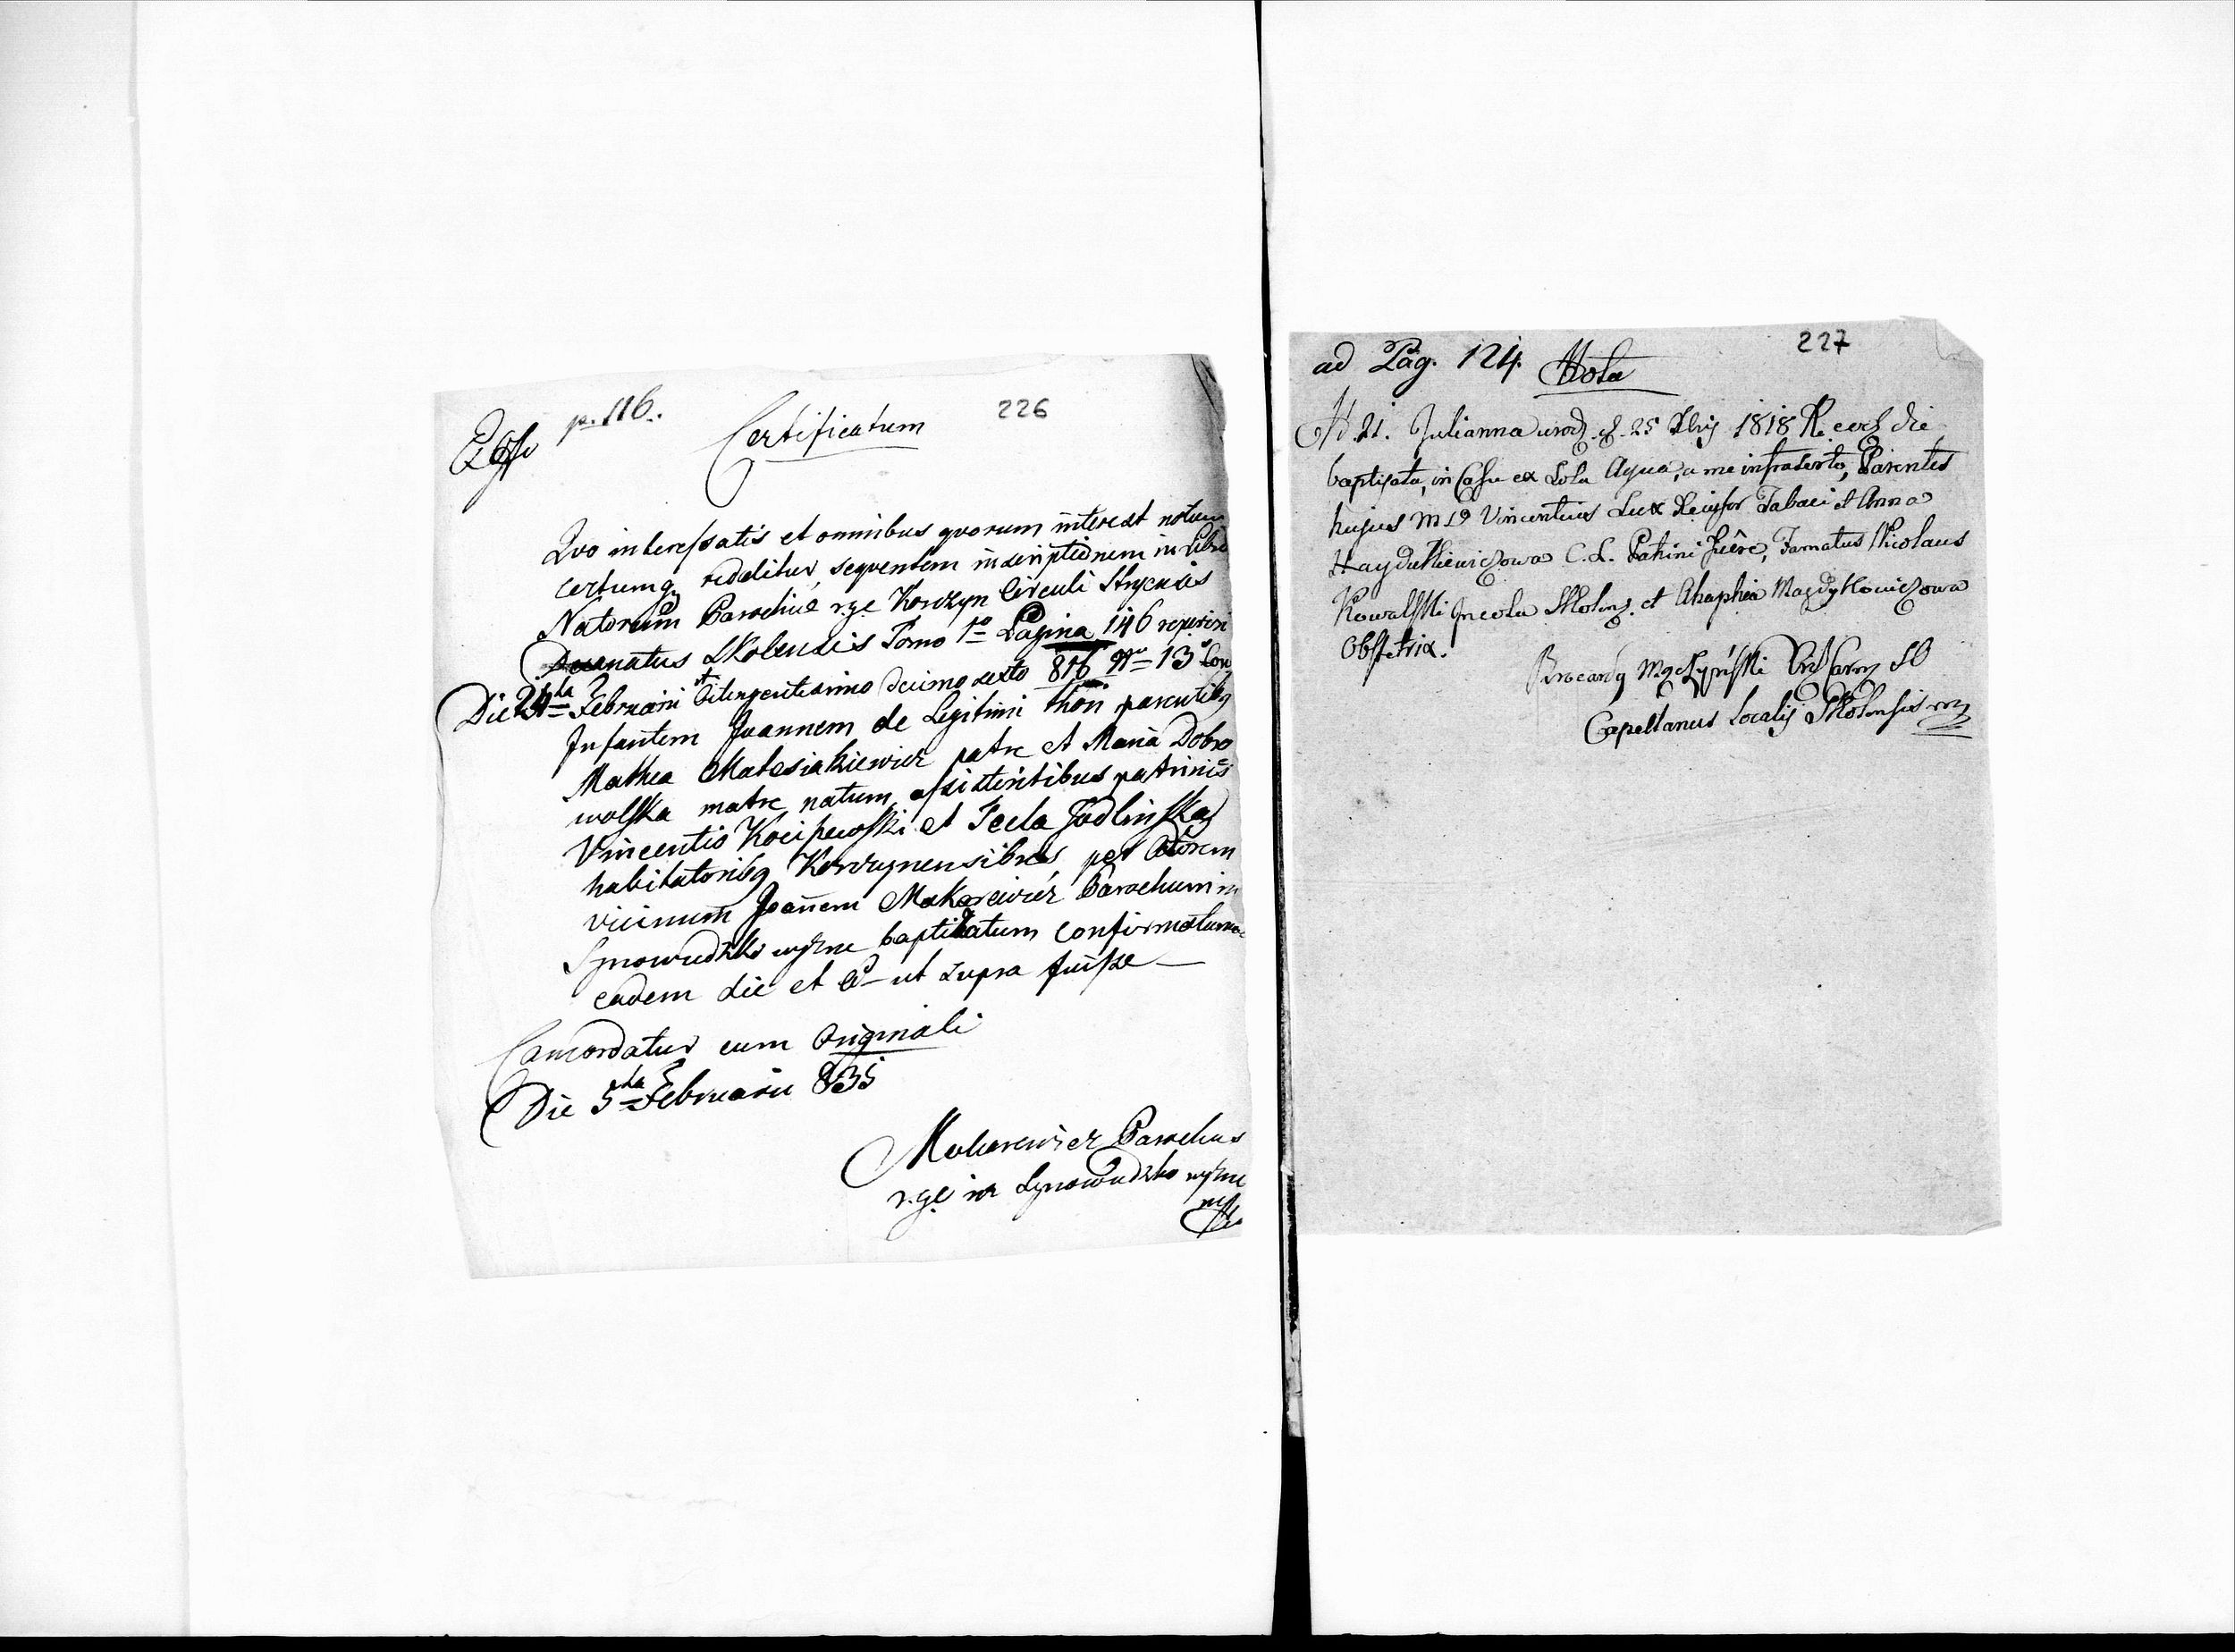 p. 116.
Certificatum
226
Quo interessatis et omnibus quorum interest notum
certumq redditur, sequentem inscriptionem in Libro
Natorum Parochiae r.g.c Korczyn Circuli Stryensis
Decanatus Skolensis Tomo 1o Pagina 146 reperiri
Die 24ta Februarii Octingentesimo decimo sexto 816 Nro 13
Infantem Joannem de Legitimi thori parentibq
Mathea Matesiakiewicz patre et Maria Dobro
wolska matre natum, assistentibus patrinis
Vincentio et Tecla Jodlinska
habitatoribq Korczynensibus, per
vicinum Joannem Makarewicz Parochum in
Synowudzko wyzne baptizatum confirmatum
eadem die et ut supra fuisse
Concordatur cum Originali
Die 5ta Februarii 835
Makarewicz Parochus
r.g.c in Synowudzko wyzne
ad Pag. 124. Nota
227
N. 21. Julianna 25 Xbris 1818 die
baptisata, in Casu ex Sola Aqua, a me infrascrto, Parentes
hujus Vincentius Lux Tabaci et Anna
Haydukiewiczowa C. L. Patrini fuere, Famatus Nicolaus
Kowalski Incola Skolens. et Ahaphia Magdykowiczowa
Obstetrix.
Capellanus Localis Skolensis mp